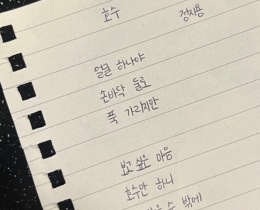 호수 정지용
얼굴 하나야
손바닥 둘로
푹 가리지만
보고 싶은 마음
호수만 하니
밖에